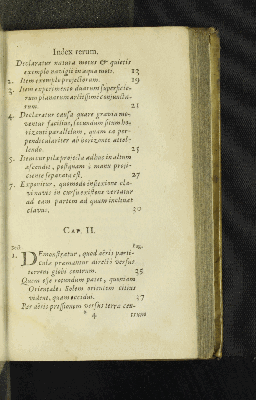 Index rerum.
Declaratur natura motus & quietis
exemplo navigii in aqua moti. 13
2. Item exemplo projectorum. 19
3. Item experimento duarum superficie-
rum planarum arctissimè conjuncta-
rum. 21
4. Declaratur causa quare gravia mo-
veantur facilius, secundum situm ho-
rizonti parallelum, quam ea per-
pendiculariter ab horizonte attol-
lendo. 25
5. Item cur pila projecta adhuc in altum
ascendat, postquam à manu proji-
ciente separata est. 27
7. Exponitur, quomodo inflexione cla-
vi navis in cursu existens vertatur
ad eam partem ad quam inclinat
clavus. 30
CAP. II.
Sect. Pag.
1. DEmonstratur, quod aëris parti-
cula premantur directè versus
terreni globi centrum. 35
Quem esse rotundum patet, quoniam
Orientales Solem orientem citius
vident, quam occidui. 37
Per aëris pressionem versus terræ cen-
* 4 trum